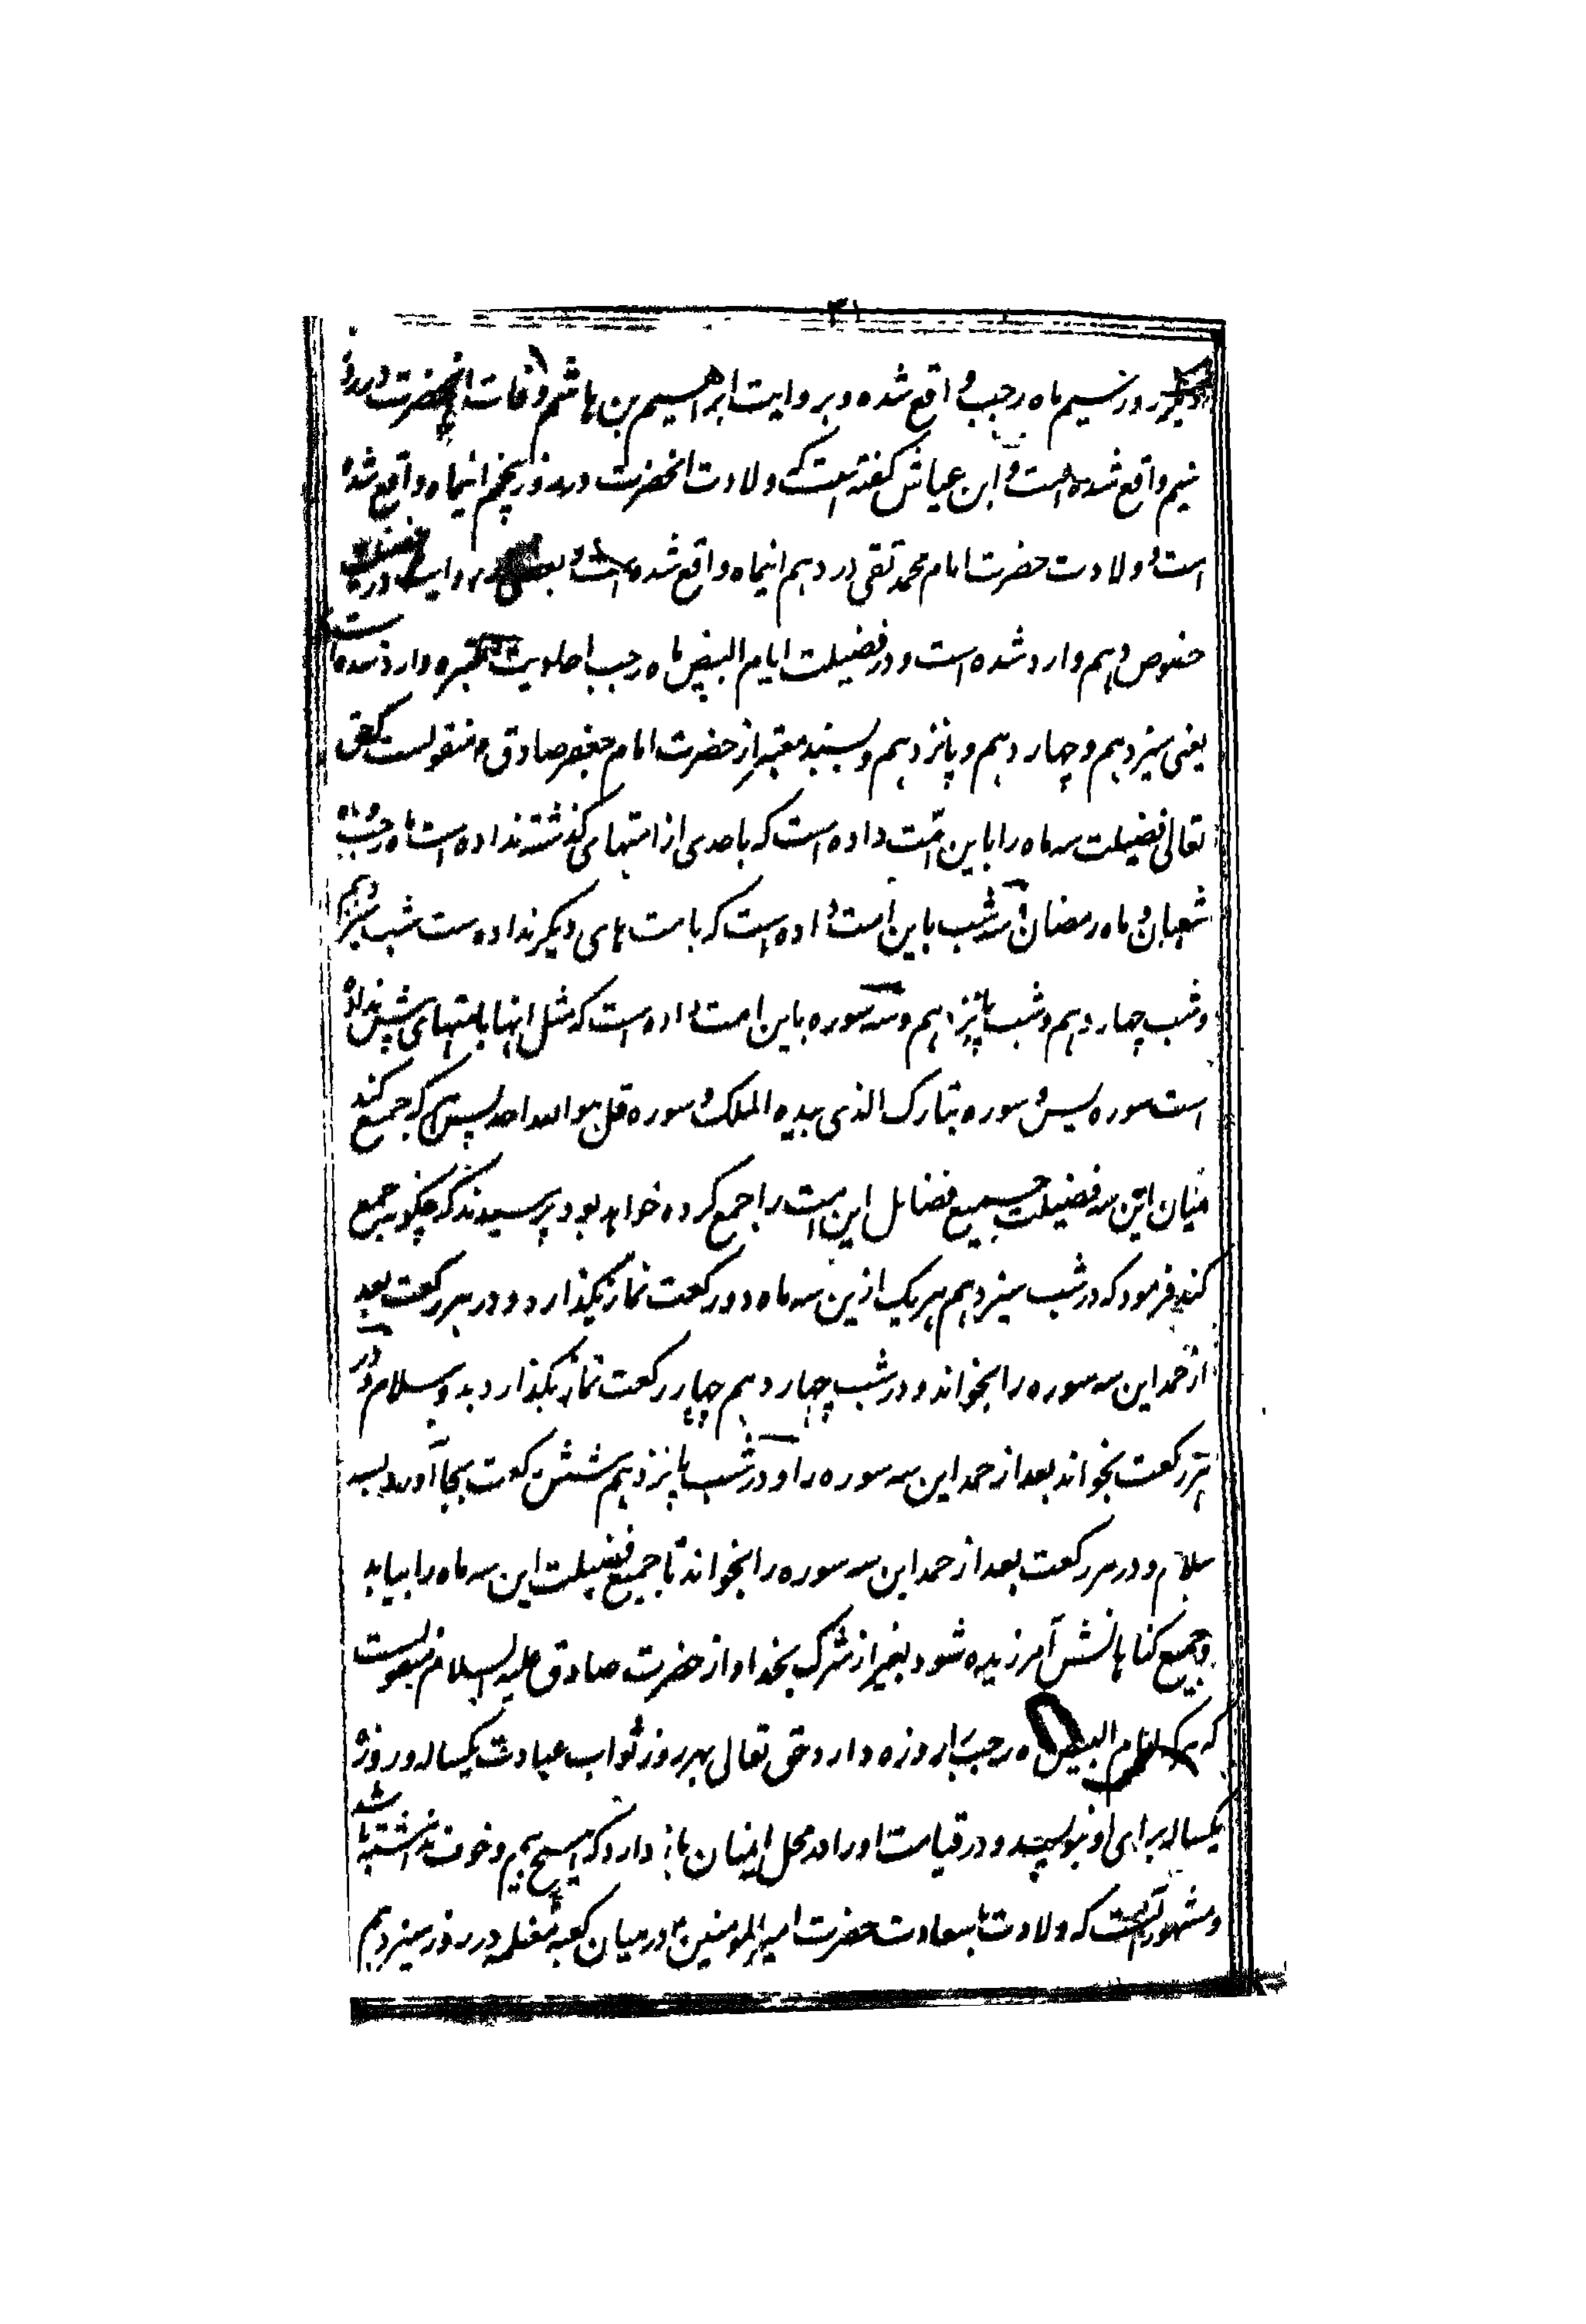 ۳۱
روز سیم ماه رجب واقع شده و بروایت ابراهیم بن هاشم وفات آنحضرت در روز
سیم واقع شده است و ابن عیاش گفته است که ولادت انحضرت در روز پنجم اینماه واقع شده
است و ولادت حضرت امام محمد تقی در دهم اینماه واقع شده است و روایت در
خصوص دهم وارد شده است و در فضیلت ایام البیض ماه رجب احادیث معتبره وارد شده است
یعنی سیزدهم و چهاردهم و پانزدهم و بسند معتبر از حضرت امام جعفر صادق ع منقولست که حق
تعالی فضیلت سه ماه را باین امّت داده است که باحدی از امتهای گذشته نداده است ماه رجب و ماه
شعبان و ماه رمضان و سه شب باین امت داده است که بامت های دیگر نداده است شب سیزدهم
و شب چهاردهم و شب پانزدهم و سه سوره باین امت داده است که مثل اینها بامتهای پیش نداده
است سوره یس و سوره تبارک الذی بیده الملک و سوره قل هو الله احد پس هر که جمع کند
میان این سه فضیلت جمیع فضایل این امت را جمع کرده خواهد بود پرسیدند که چگونه جمع
کند فرمود که در شب سیزدهم هر یک ازین سه ماه دو رکعت نماز بگذارد و در هر رکعت بعد
از حمد این سه سوره را بخواند و در شب چهاردهم چهار رکعت نماز بگذارد بدو سلام و در
هر رکعت بخواند بعد از حمد این سه سوره را و در شب پانزدهم شش رکعت بجا آورد بسه
سلام و در هر رکعت بعد از حمد این سه سوره را بخواند تا جمیع فضیلت این سه ماه را بیابد
و جمیع کناهانش آمرزیده شود بغیر از شرک بخدا و از حضرت صادق علیه السلام منقولست
که هر که ایام البیض ماه رجب را روزه دارد حق تعالی بهر روز ثواب عبادت یکساله و روزه
یکساله برای او بنویسد و در قیامت او را در محل ایمنان باز دارد که هیچ بیم و خوف نداشته باشد
و مشهور آنست که ولادت باسعادت حضرت امیر المومنین ع در میان کعبه معظمه در روز سیزدهم